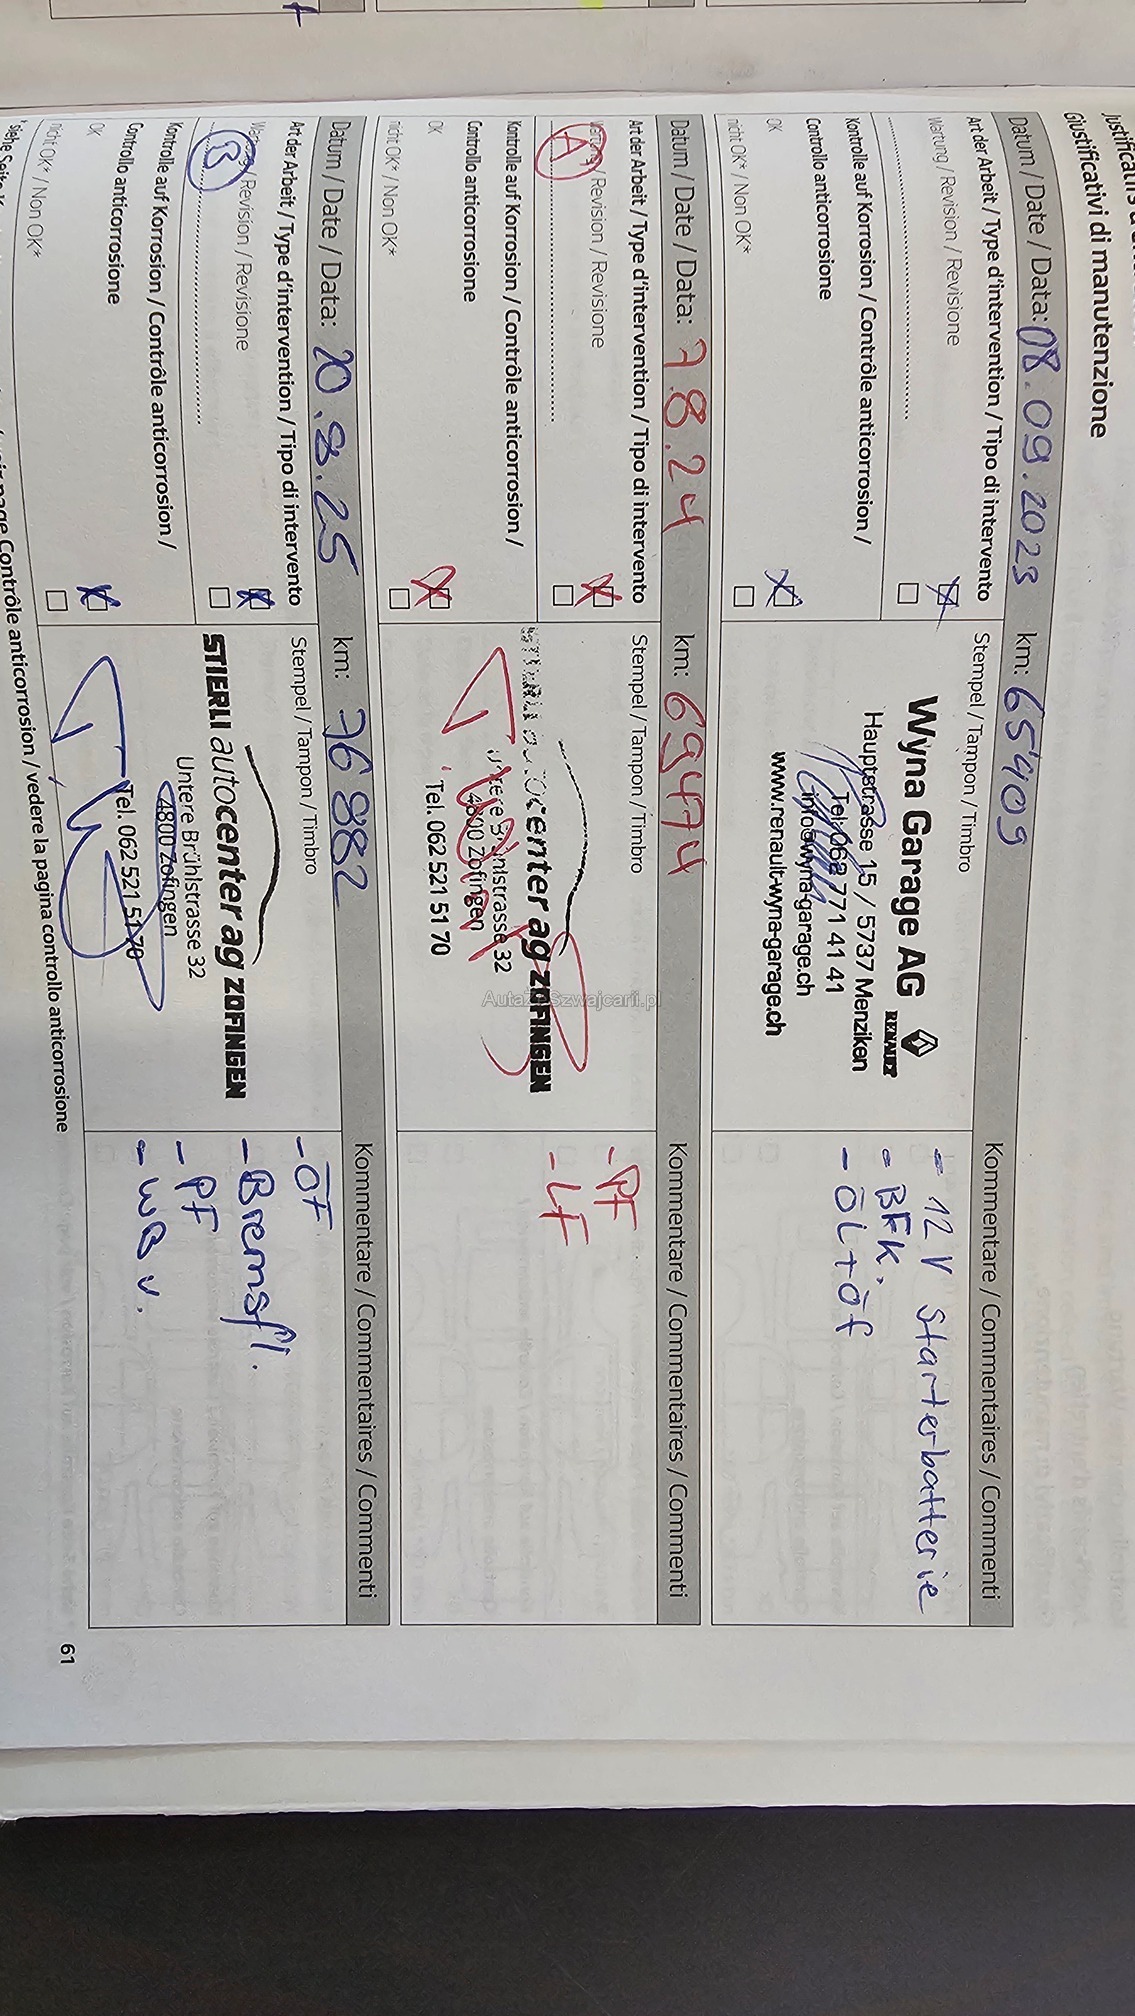 Giustificativi di manutenzione
Datum / Date / Data: 08.09.2023
km: 65'409
Kommentare / Commentaires / Commenti
Art der Arbeit / Type d'intervention / Tipo di intervento
Wartung / Revision / Revisione
Kontrolle auf Korrosion / Contrôle anticorrosion /
Controllo anticorrosione
OK
nicht OK* / Non OK*
Stempel / Tampon / Timbro
Wyna Garage AG
RENAULT
Hauptstrasse 15 / 5737 Menziken
Tel. 062 771 41 41
info@wyna-garage.ch
www.renault-wyna-garage.ch
- 12 V Starterbatterie
- BFK.
- ÖL + ÖF
Datum / Date / Data: 7.8.24
km: 69474
Kommentare / Commentaires / Commenti
Art der Arbeit / Type d'intervention / Tipo di intervento
Wartung / Revision / Revisione
A
Kontrolle auf Korrosion / Contrôle anticorrosion /
Controllo anticorrosione
OK
nicht OK* / Non OK*
Stempel / Tampon / Timbro
autocenter ag ZOFINGEN
Untere Brühlstrasse 32
4800 Zofingen
Tel. 062 521 51 70
- PF
- LF
Datum / Date / Data: 20.8.25
km: 76882
Kommentare / Commentaires / Commenti
Art der Arbeit / Type d'intervention / Tipo di intervento
Wartung / Revision / Revisione
B
Kontrolle auf Korrosion / Contrôle anticorrosion /
Controllo anticorrosione
OK
nicht OK* / Non OK*
Stempel / Tampon / Timbro
STIERLI autocenter ag ZOFINGEN
Untere Brühlstrasse 32
4800 Zofingen
Tel. 062 521 51 70
- ÖF
- Bremsfl.
- PF
- WB v.
Contrôle anticorrosion / vedere la pagina controllo anticorrosione
61
AutaZeSzwajcarii.pl